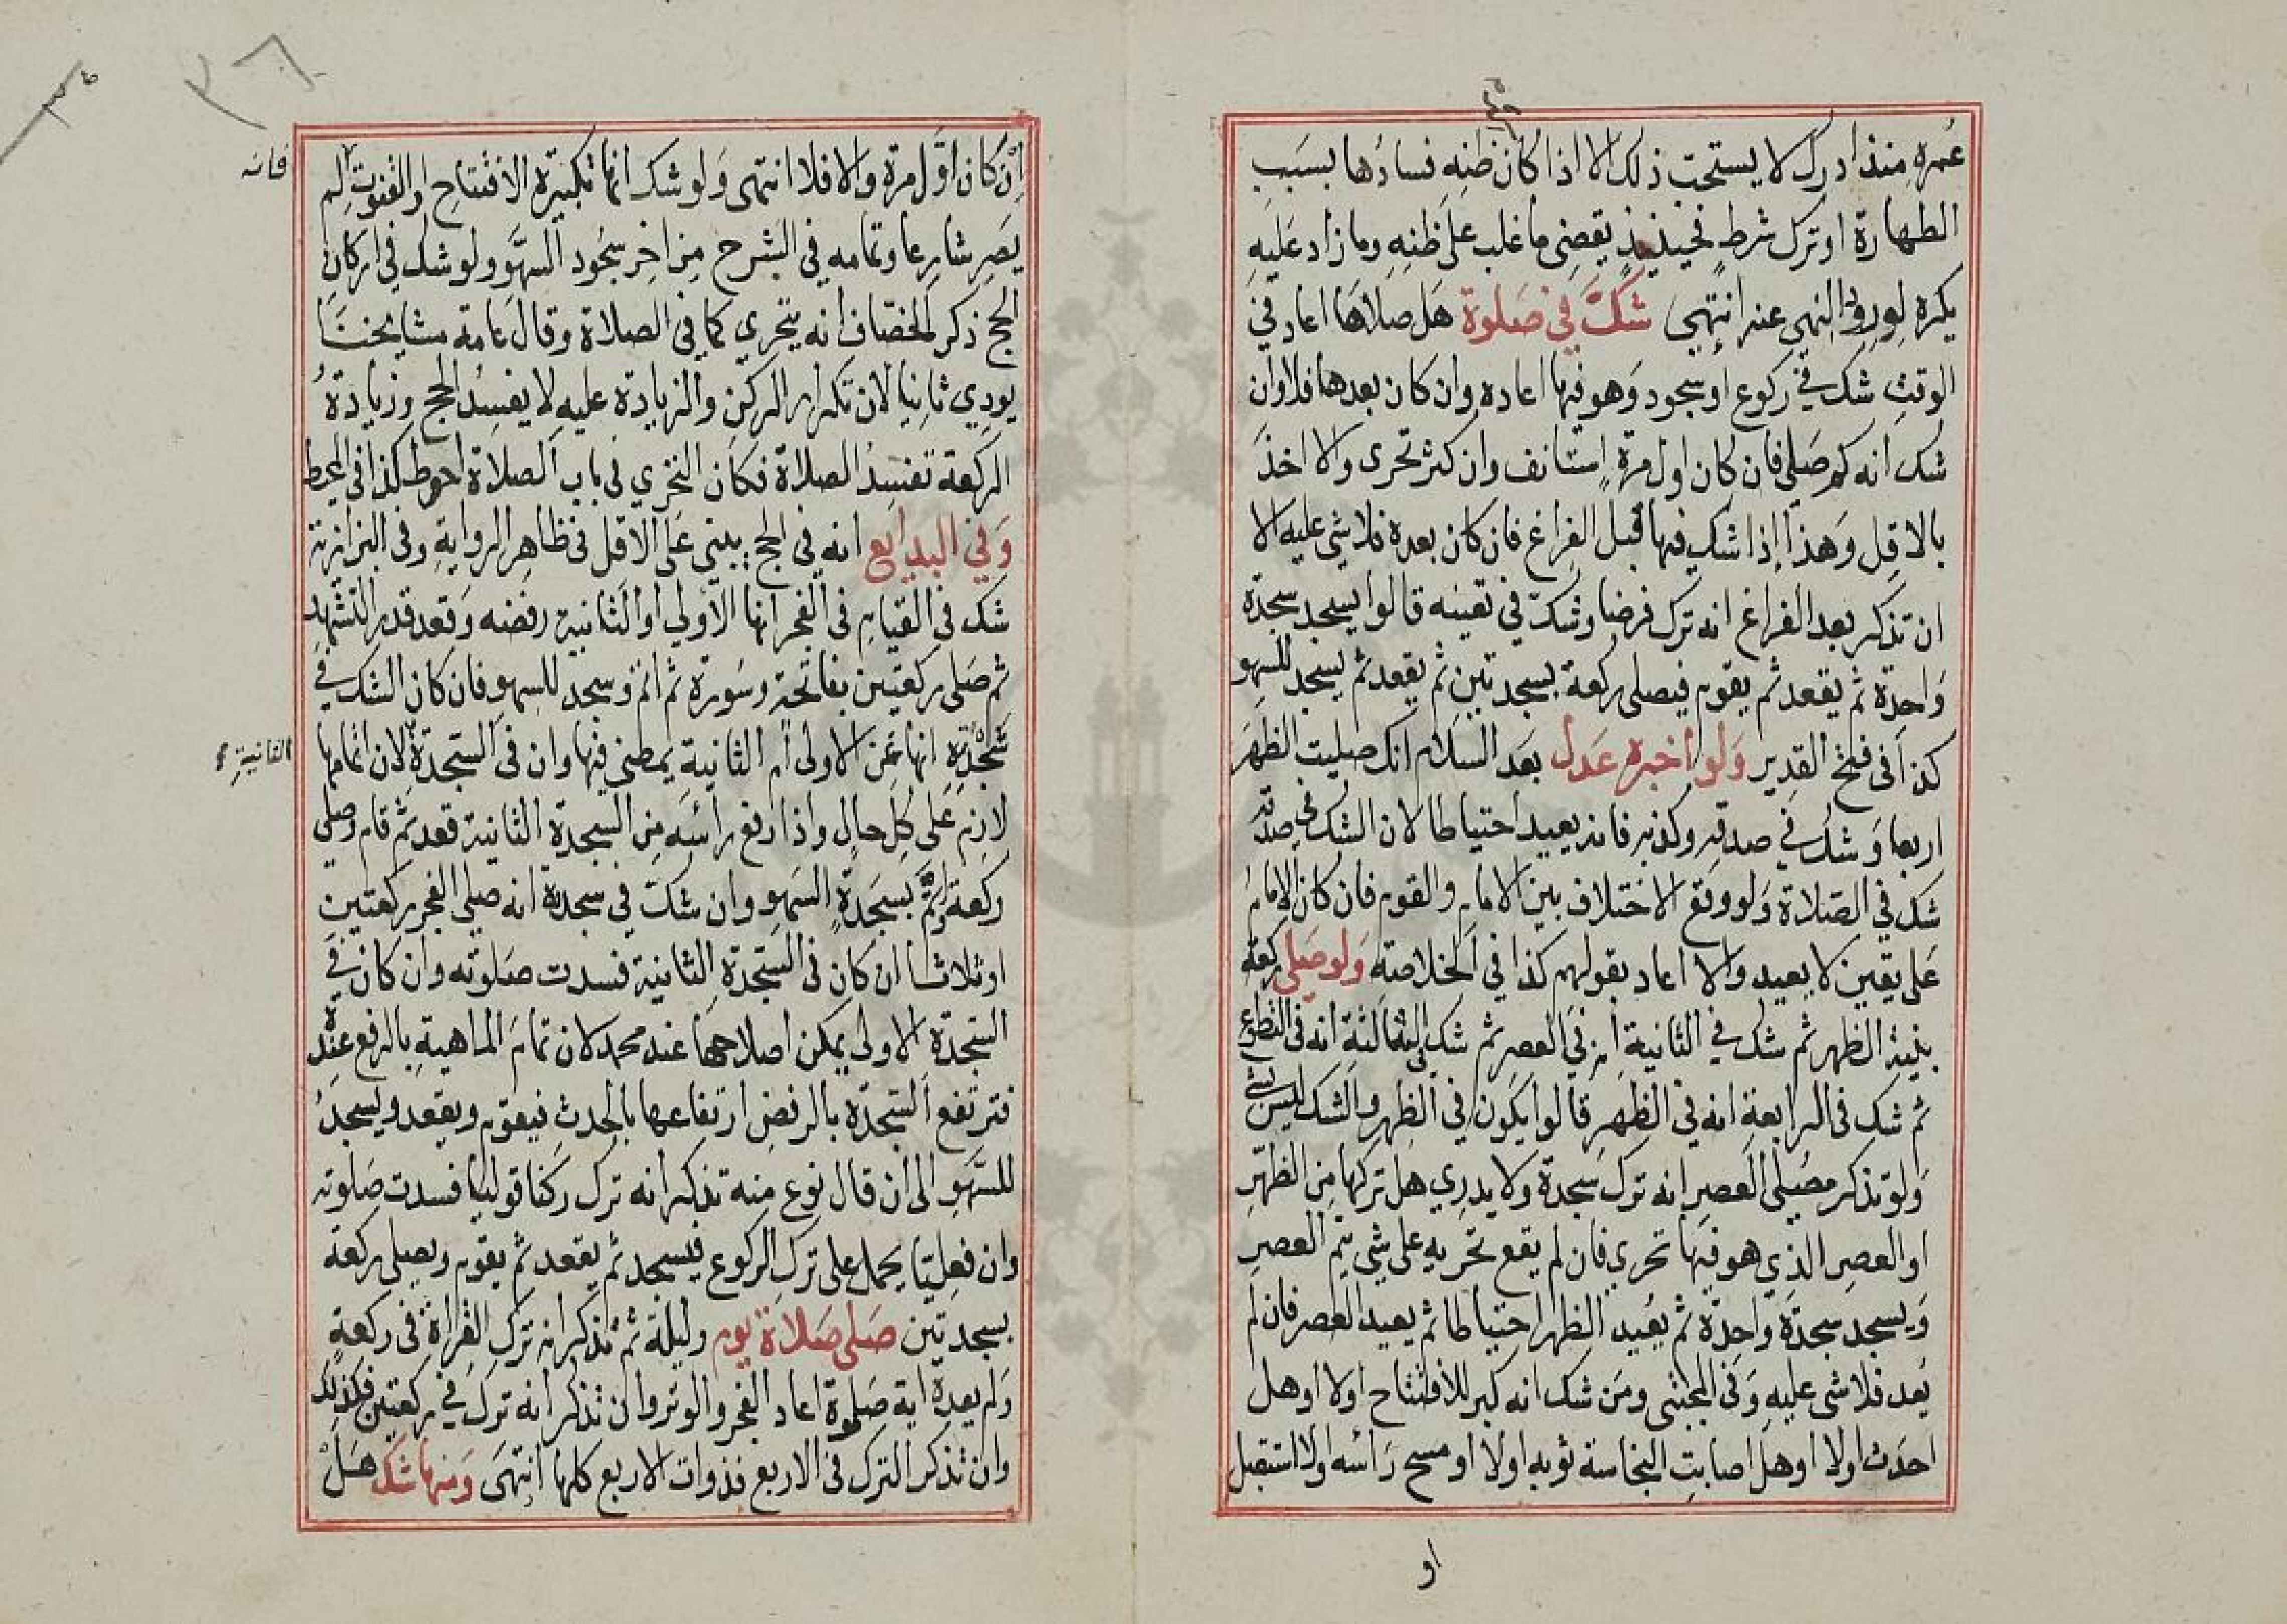 عمره منذ ادرك لا يستحب ذلك الا اذا كان ظنه فسادها بسبب
الطهارة او ترك شرط فحينئذ يقضى ما غلب على ظنه وما زاد عليه
يكره لورود النهى عنه انتهى شك في صلوة هل صلاها اعاد في
الوقت شك في ركوع او سجود وهو فيها اعاده وان كان بعدها فلا وان
شك انه كم صلى فان كان اول مرة استانف وان كثر تحرى والا اخذ
بالاقل وهذا إذا شك فيها قبل الفراغ فان كان بعده فلا شى عليه الا
ان تذكر بعد الفراغ انه ترك فرضا وشك في تعينه قالوا يسجد سجدة
واحدة ثم يقعد ثم يقوم فيصلى ركعة بسجدتين ثم يقعد ثم يسجد للسهو
كذا فى فتح القدير ولو أخبره عدل بعد السلام انك صليت الظهر
اربعا وشك في صدقه وكذبه فانه يعيد احتياطا لان الشك في صدقه
شك في الصلاة ولو وقع الاختلاف بين الامام والقوم فان كان الامام
على يقين لا يعيد والا اعاد بقولهم كذا في الخلاصة ولو صلى ركعة
بنية الظهر ثم شك في الثانية انه في العصر ثم شك فى الثالثة انه فى التطوع
ثم شك فى الرابعة انه في الظهر قالوا يكون في الظهر والشك ليس بشى
ولو تذكر مصلى العصر انه ترك سجدة ولا يدري هل تركها من الظهر
او العصر الذي هو فيها تحري فان لم يقع تحريه على شي يتم العصر
ويسجد سجدة واحدة ثم يعيد الظهر احتياطا ثم يعيد العصر فان لم
يعد فلا شى عليه وفى المجتبى ومن شك انه كبر للافتتاح اولا او هل
احدث اولا او هل اصابت النجاسة ثوبه اولا او مسح رأسه اولا استقبل
او
إن كان اول مرة والا فلا انتهى ولو شك انها تكبيرة الافتتاح او القنوت لم
فانه
يصر شارعا وتمامه في الشرح من اخر سجود السهو ولو شك في اركان
الحج ذكر الخصاف انه يتحري كما في الصلاة وقال عامة مشايخنا
يودي ثانيا لان تكرار الركن والزيادة عليه لا يفسد الحج وزيادة
الركعة تفسد الصلاة فكان التحري في باب الصلاة احوط كذا فى المحيط
وفي البدايع انه في الحج يبني على الاقل فى ظاهر الرواية وفى البزازية
شك في القيام فى الفجر انها الأولي او الثانية رفضه وقعد قدر التشهد
ثم صلى ركعتين بفاتحة وسورة ثم اتم وسجد للسهو فان كان الشك في
سجدته انها عن الاولى أم الثانية يمضى فيها وان فى السجدة لان اتمامها
الثانية
لازم على كل حال واذا رفع رأسه من السجدة الثانية قعد ثم قام وصلى
ركعة واتم بسجدة السهو وان شك في سجدة انه صلى الفجر ركعتين
او ثلاثا ان كان فى السجدة الثانية فسدت صلوته وان كان في
السجدة الاولى يمكن اصلاحها عند محمد لان تمام الماهية بالرفع عنده
فترتفع السجدة بالرفض ارتفاعها بالحدث فيقوم ويقعد ويسجد
للسهو الى ان قال نوع منه تذكر انه ترك ركنا قوليا فسدت صلوته
وان فعليا يحمل على ترك الركوع فيسجد ثم يقعد ثم يقوم ويصلى ركعة
بسجدتين صلى صلاة يوم وليلة ثم تذكر انه ترك القراة فى ركعة
ولم يعدم اية صلوة اعاد الفجر والوتر وان تذكر انه ترك في ركعتين فكذلك
وان تذكر الترك فى الاربع فذوات الاربع كلها انتهى ومنها شك هل